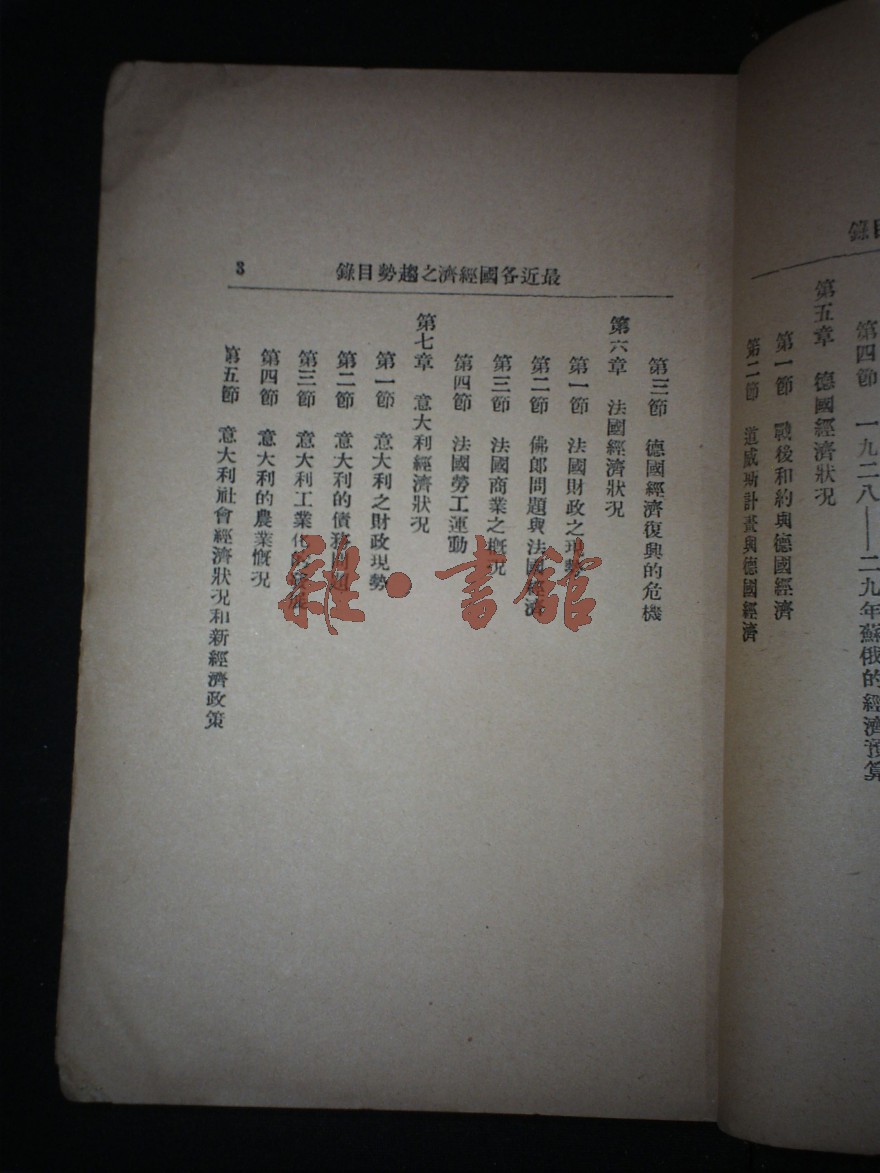 目錄
第四節 一九二八——二九年蘇俄的經濟預算
第五章 德國經濟狀况
第一節 戰後和約與德國經濟
第二節 道威斯計畫與德國經濟
最近各國經濟之趨勢目錄 3
第三節 德國經濟復興的危機
第六章 法國經濟狀况
第一節 法國財政之現勢
第二節 佛郎問題與法國經濟
第三節 法國商業之概况
第四節 法國勞工運動
第七章 意大利經濟狀况
第一節 意大利之財政現勢
第二節 意大利的債務問題
第三節 意大利工業化的發展
第四節 意大利的農業慨况
第五節 意大利社會經濟狀况和新經濟政策
雜·書館